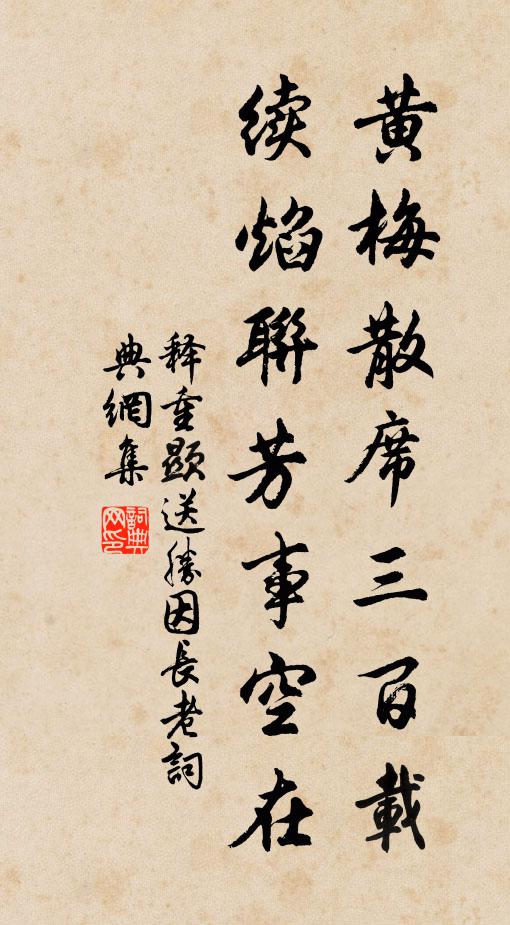 黄梅散席三百載
续焰聯芳事空在
释重顯送勝因長老詞
典網集
詞典
网印